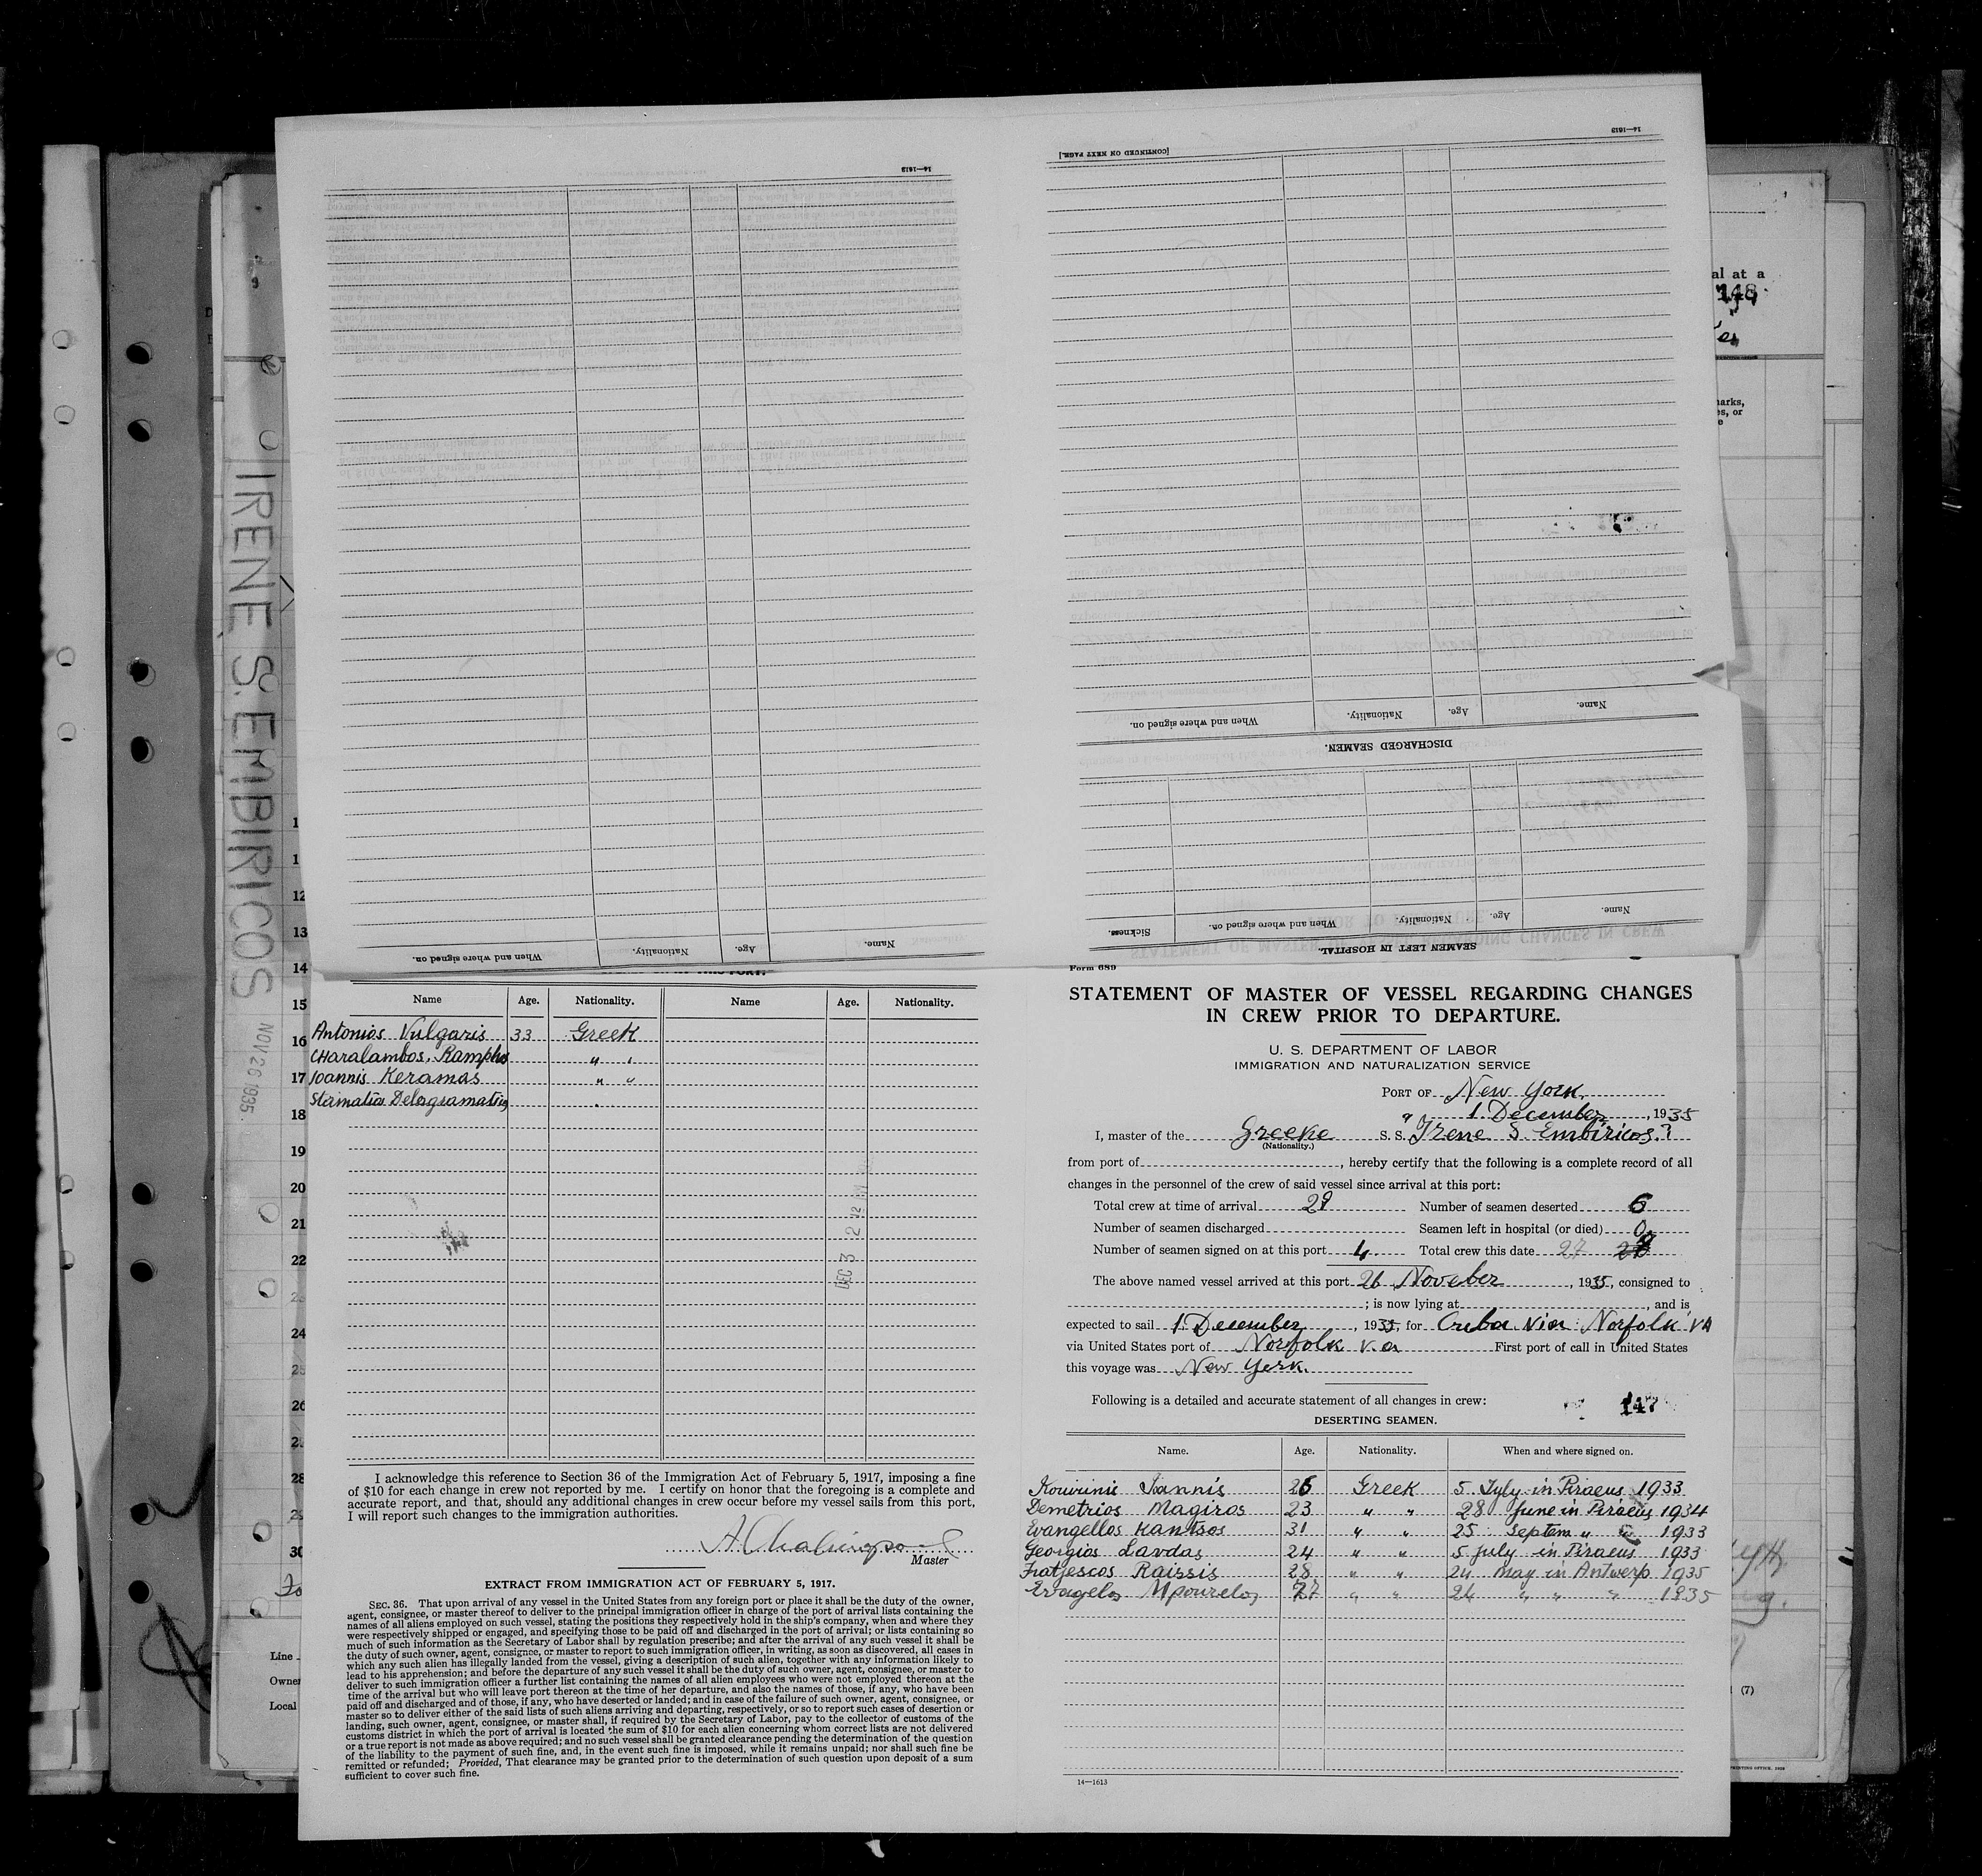 14—1613
14—1613
[CONTINUED ON NEXT PAGE.]
When and where signed on. Nationality. Age. Name.
DISCHARGED SEAMEN.
Sickness. When and where signed on. Nationality. Age. Name.
SEAMEN LEFT IN HOSPITAL.
When and where signed on. Nationality. Age. Name.
al at a
148
arks,
es, or
e
IRENE S. EMBIRICOS
NOV 26 1935
12
13
14
15
16
17
18
19
20
21
22
24
26
28
30
Line
Owner
Local
Name Age. Nationality. Name Age. Nationality.
Antonios Vulgaris 33 Greek
Charalambos. Ramphos " "
Ioannis Keramas " "
Stamatios Delagramatis
DEC 3 2 12 PM
I acknowledge this reference to Section 36 of the Immigration Act of February 5, 1917, imposing a fine
of $10 for each change in crew not reported by me. I certify on honor that the foregoing is a complete and
accurate report, and that, should any additional changes in crew occur before my vessel sails from this port,
I will report such changes to the immigration authorities.
Master
EXTRACT FROM IMMIGRATION ACT OF FEBRUARY 5, 1917.
SEC. 36. That upon arrival of any vessel in the United States from any foreign port or place it shall be the duty of the owner,
agent, consignee, or master thereof to deliver to the principal immigration officer in charge of the port of arrival lists containing the
names of all aliens employed on such vessel, stating the positions they respectively hold in the ship's company, when and where they
were respectively shipped or engaged, and specifying those to be paid off and discharged in the port of arrival; or lists containing so
much of such information as the Secretary of Labor shall by regulation prescribe; and after the arrival of any such vessel it shall be
the duty of such owner, agent, consignee, or master to report to such immigration officer, in writing, as soon as discovered, all cases in
which any such alien has illegally landed from the vessel, giving a description of such alien, together with any information likely to
lead to his apprehension; and before the departure of any such vessel it shall be the duty of such owner, agent, consignee, or master to
deliver to such immigration officer a further list containing the names of all alien employees who were not employed thereon at the
time of the arrival but who will leave port thereon at the time of her departure, and also the names of those, if any, who have been
paid off and discharged and of those, if any, who have deserted or landed; and in case of the failure of such owner, agent, consignee, or
master so to deliver either of the said lists of such aliens arriving and departing, respectively, or so to report such cases of desertion or
landing, such owner, agent, consignee, or master shall, if required by the Secretary of Labor, pay to the collector of customs of the
customs district in which the port of arrival is located the sum of $10 for each alien concerning whom correct lists are not delivered
or a true report is not made as above required; and no such vessel shall be granted clearance pending the determination of the question
of the liability to the payment of such fine, and, in the event such fine is imposed, while it remains unpaid; nor shall such fine be
remitted or refunded; Provided, That clearance may be granted prior to the determination of such question upon deposit of a sum
sufficient to cover such fine.
Form 689
STATEMENT OF MASTER OF VESSEL REGARDING CHANGES
IN CREW PRIOR TO DEPARTURE.
U. S. DEPARTMENT OF LABOR
IMMIGRATION AND NATURALIZATION SERVICE
PORT OF New York.
1 December, 1935
I, master of the Greeke S. S. "Irene S Embiricos.
(Nationality.)
from port of , hereby certify that the following is a complete record of all
changes in the personnel of the crew of said vessel since arrival at this port:
Total crew at time of arrival 29 Number of seamen deserted 6
Number of seamen discharged Seamen left in hospital (or died) 0
Number of seamen signed on at this port 4 Total crew this date 27
The above named vessel arrived at this port 26 Noveber, 1935, consigned to
; is now lying at , and is
expected to sail 1 December, 1935, for Cuba via Norfolk VA
via United States port of Norfolk V.a First port of call in United States
this voyage was New York.
Following is a detailed and accurate statement of all changes in crew: 147
DESERTING SEAMEN.
Name. Age. Nationality. When and where signed on.
Kouvinis Ioannis 26 Greek 5 July in Piraeus 1933
Demetrios Magiros 23 " " 28 June in Piraeus 1934
Evangellos Kantsos 31 " " 25 Septem " " 1933
Georgios Lavdas 24 " " 5 July in Piraeus 1933
Fratjescos Raissis 28 " " 24 May in Antwerp 1935
Evagelos Mpourelos 27 " " 24 " " " 1935
14—1613
(7)